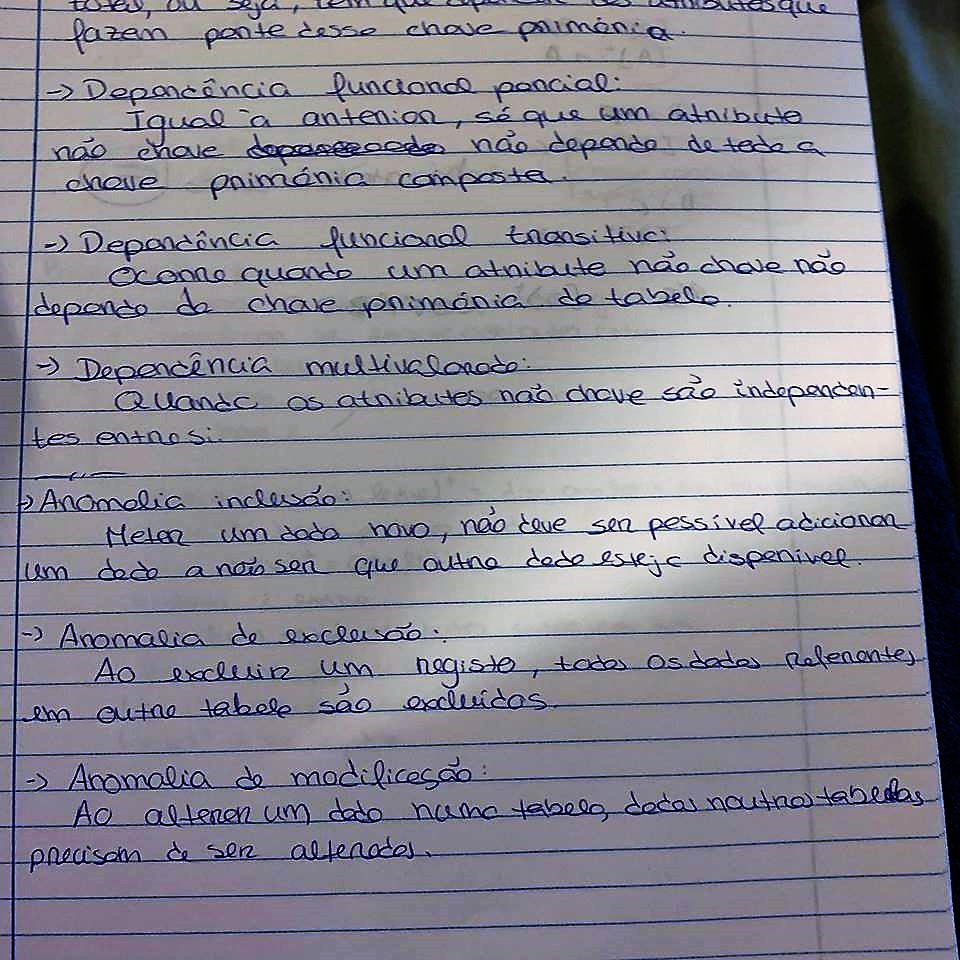 total, ou seja, tem que depender dos atributos que
fazem parte desse chave primária.
-> Dependência funcional parcial:
Igual à anterior, só que um atributo
não chave não depende de toda a
chave primária composta.
-> Dependência funcional transitiva:
Ocorre quando um atributo não chave não
depende da chave primária da tabela.
-> Dependência multivalorada:
Quando os atributos não chave são independen-
tes entre si.
-> Anomalia inclusão:
Meter um dado novo, não deve ser possível adicionar
um dado a não ser que outro dado esteja disponível.
-> Anomalia de exclusão:
Ao excluir um registo, todos os dados referentes
em outra tabela são excluídos.
-> Anomalia de modificação:
Ao alterar um dado numa tabela, dados noutras tabelas
precisam de ser alterados.